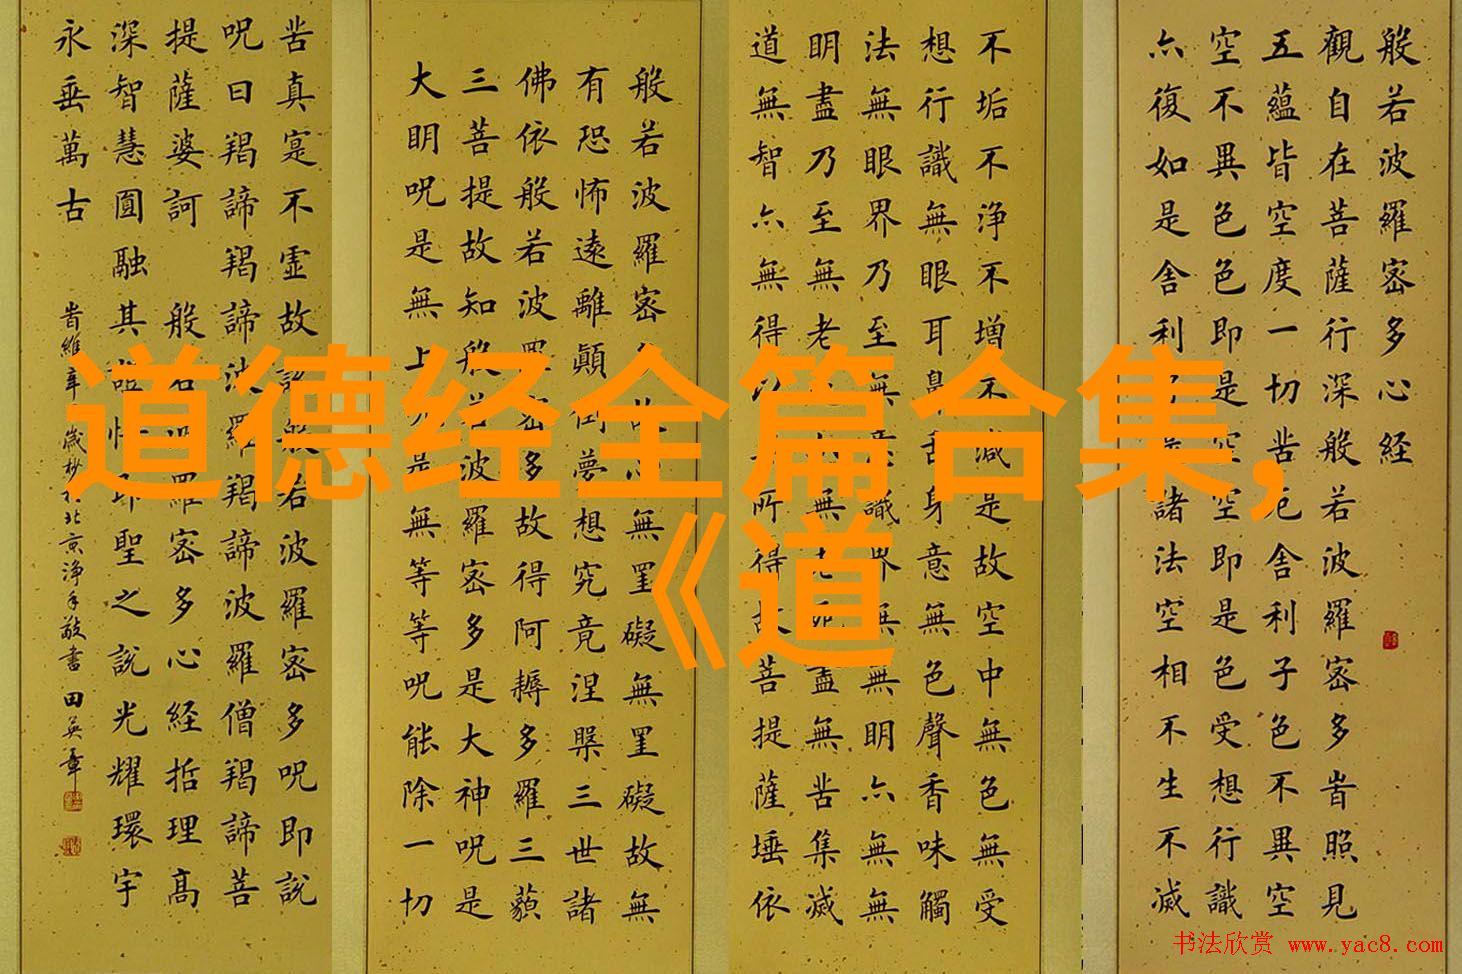 道德经全篇合集,
《道
般若波羅密多心経
觀自在菩薩行深般若波羅密多旹照見
五蘊皆空度一切苦厄舍利子色不異空
空不異色色即是空空即是色受想行識
亦復如是舍利諸法空相不生不滅
不垢不浄不增不減是故空中無色無受
想行識無眼耳鼻舌身意無色聲香味觸
法無眼界乃至無意識界無無明亦無無
明盡乃至無老無老死盡無苦集滅
道無智亦無得以所得故菩提薩埵依
般若波羅密多故心無罣礙無罣礙故無
有恐怖遠離顛倒夢想究竟涅槃三世諸
佛依般若波羅密多故得阿耨多羅三藐
三菩提故知般若波羅密多是大神咒是
大明咒是無上咒是無等等咒能除一切
苦真寔不虛故説般若波羅密多咒即説
咒曰羯諦羯諦波羅羯諦波羅僧羯諦菩
提薩婆訶 般若波羅密多心経哲理高
深智慧圓融其即聖之説光耀環宇
永垂萬古
旹維辛歲杪於北京淨手敬書 田英章
书法欣赏 www.yac8.com